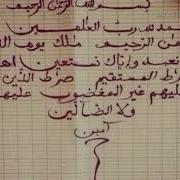 بسم الله الرحمن الرحيم
مد لله رب العالمين
من الرحيم ملك يوم الد
نعبد وإياك نستعين اهـ
راط المستقيم صرط الذين
ليهم غير المغضوب عليهم
ولا الضالين
آمين